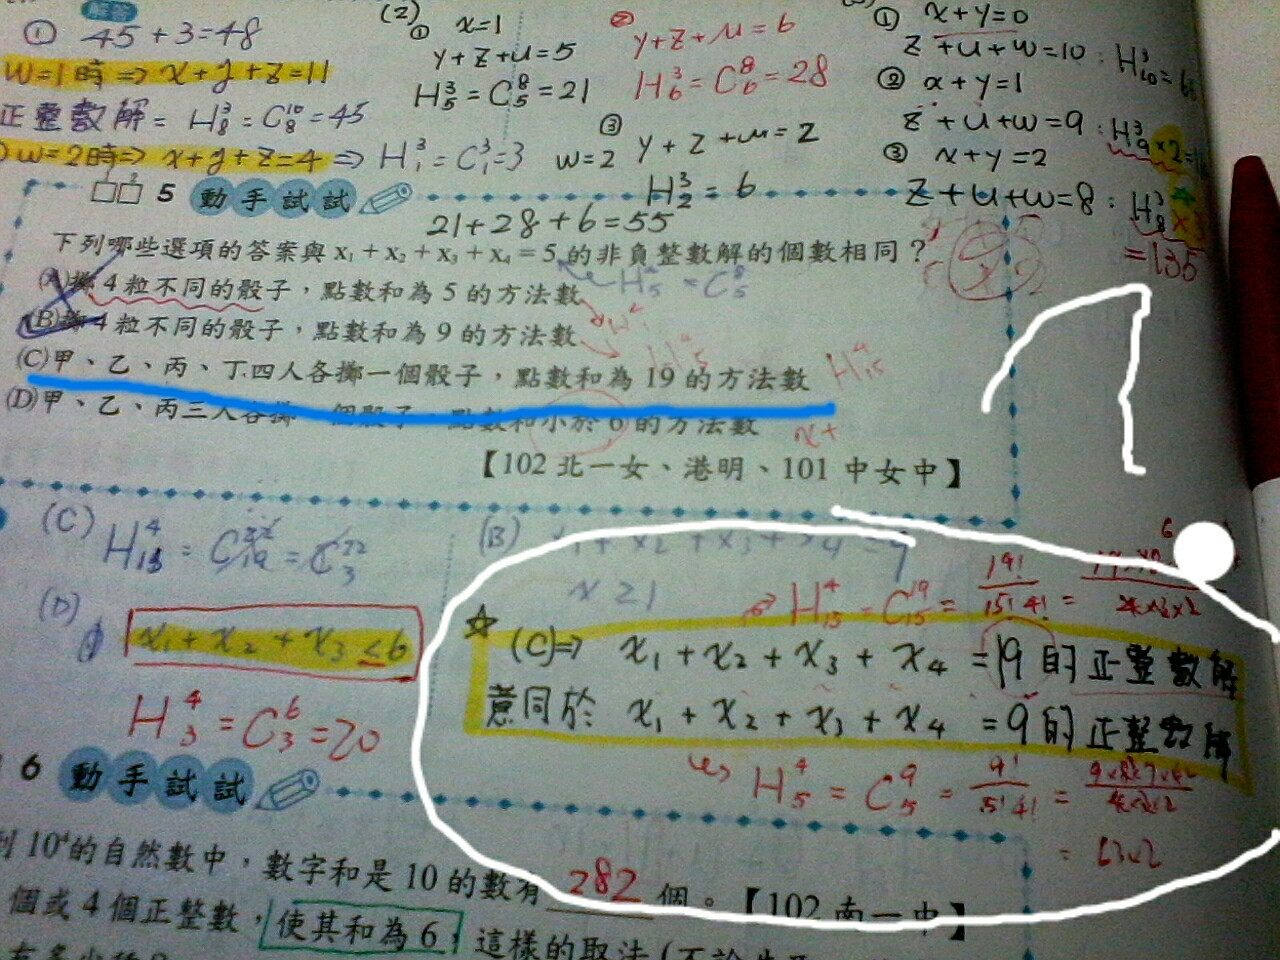 解答
① 45+3=48
W=1時⇒ x+y+z=11
正整數解= H³₈ = C¹⁰₈ = 45
W=2時⇒ x+y+z=4 ⇒ H³₁ = C³₁ = 3
(2)
① x=1
y+z+u=5
H³₅=C⁸₅=21
② y+z+u=6
H³₆=C⁸₆=28
③ W=2 y+z+u=2
H³₂=6
21+28+6=55
① x+y=0
z+u+w=10 : H³₁₀
② x+y=1
z+u+w=9 : H³₉×2
③ x+y=2
z+u+w=8 : H³₈×3
=135
5 動手試試
下列哪些選項的答案與 x₁+x₂+x₃+x₄=5 的非負整數解的個數相同？
H⁴₅=C⁸₅
(A)擲 4 粒不同的骰子，點數和為 5 的方法數
(B)擲 4 粒不同的骰子，點數和為 9 的方法數
(C)甲、乙、丙、丁四人各擲一個骰子，點數和為 19 的方法數
H⁴₁₅
(D)甲、乙、丙三人各擲一個骰子，點數和小於 6 的方法數
【102 北一女、港明、101 中女中】
(C)
(B) x₁+x₂+x₃+x₄=9
x≥1
H⁴₁₅=C¹⁹₁₅= 19!/15!4! =
(D)
x₁+x₂+x₃≤6
H⁴₃=C⁶₃=20
☆ (C)⇒ x₁+x₂+x₃+x₄=19 的正整數解
意同於 x₁+x₂+x₃+x₄=9 的正整數解
H⁴₅=C⁹₅= 9!/5!4! =
= 63×2
6 動手試試
到 10⁴的自然數中，數字和是 10 的數有 282 個。【102 南一中】
個或 4 個正整數，使其和為 6，這樣的取法(不論先